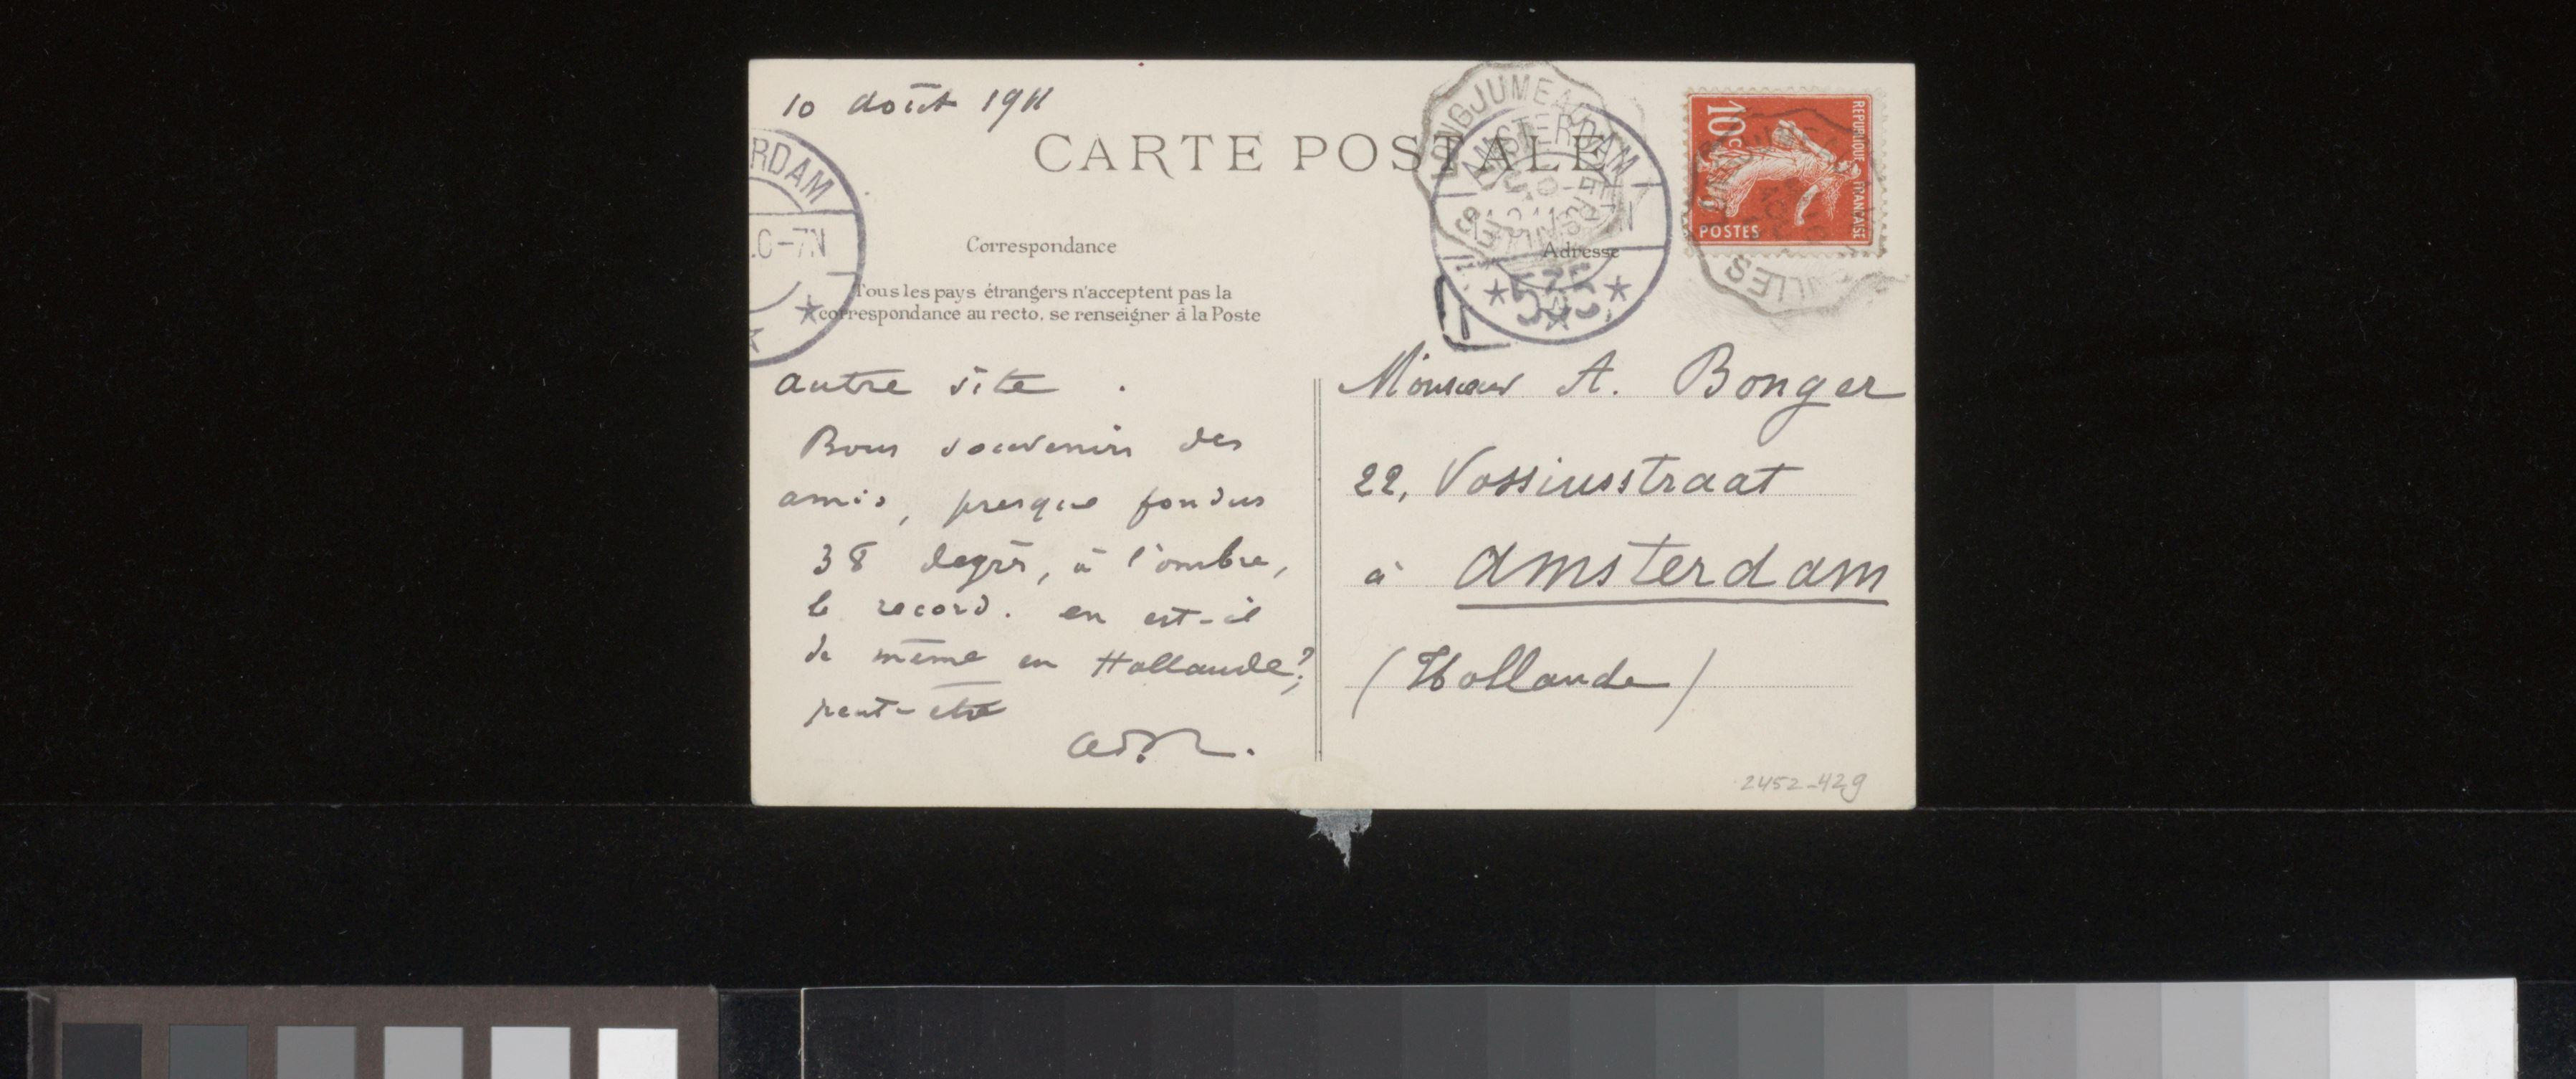 10 août 1911
CARTE POSTALE
Correspondance
Adresse
Tous les pays étrangers n'acceptent pas la
correspondance au recto, se renseigner à la Poste
autre site.
Bons souvenirs des
amis, presque fondus
38 degrés, à l'ombre,
le record. en est-il
de même en Hollande?
peut-être
Monsieur A. Bonger
22, Vossiusstraat
à Amsterdam
(Hollande)
2452-429
10c
REPUBLIQUE FRANÇAISE
POSTES
LONGJUMEAU
AMSTERDAM
★ 575 ★
RDAM
-7N